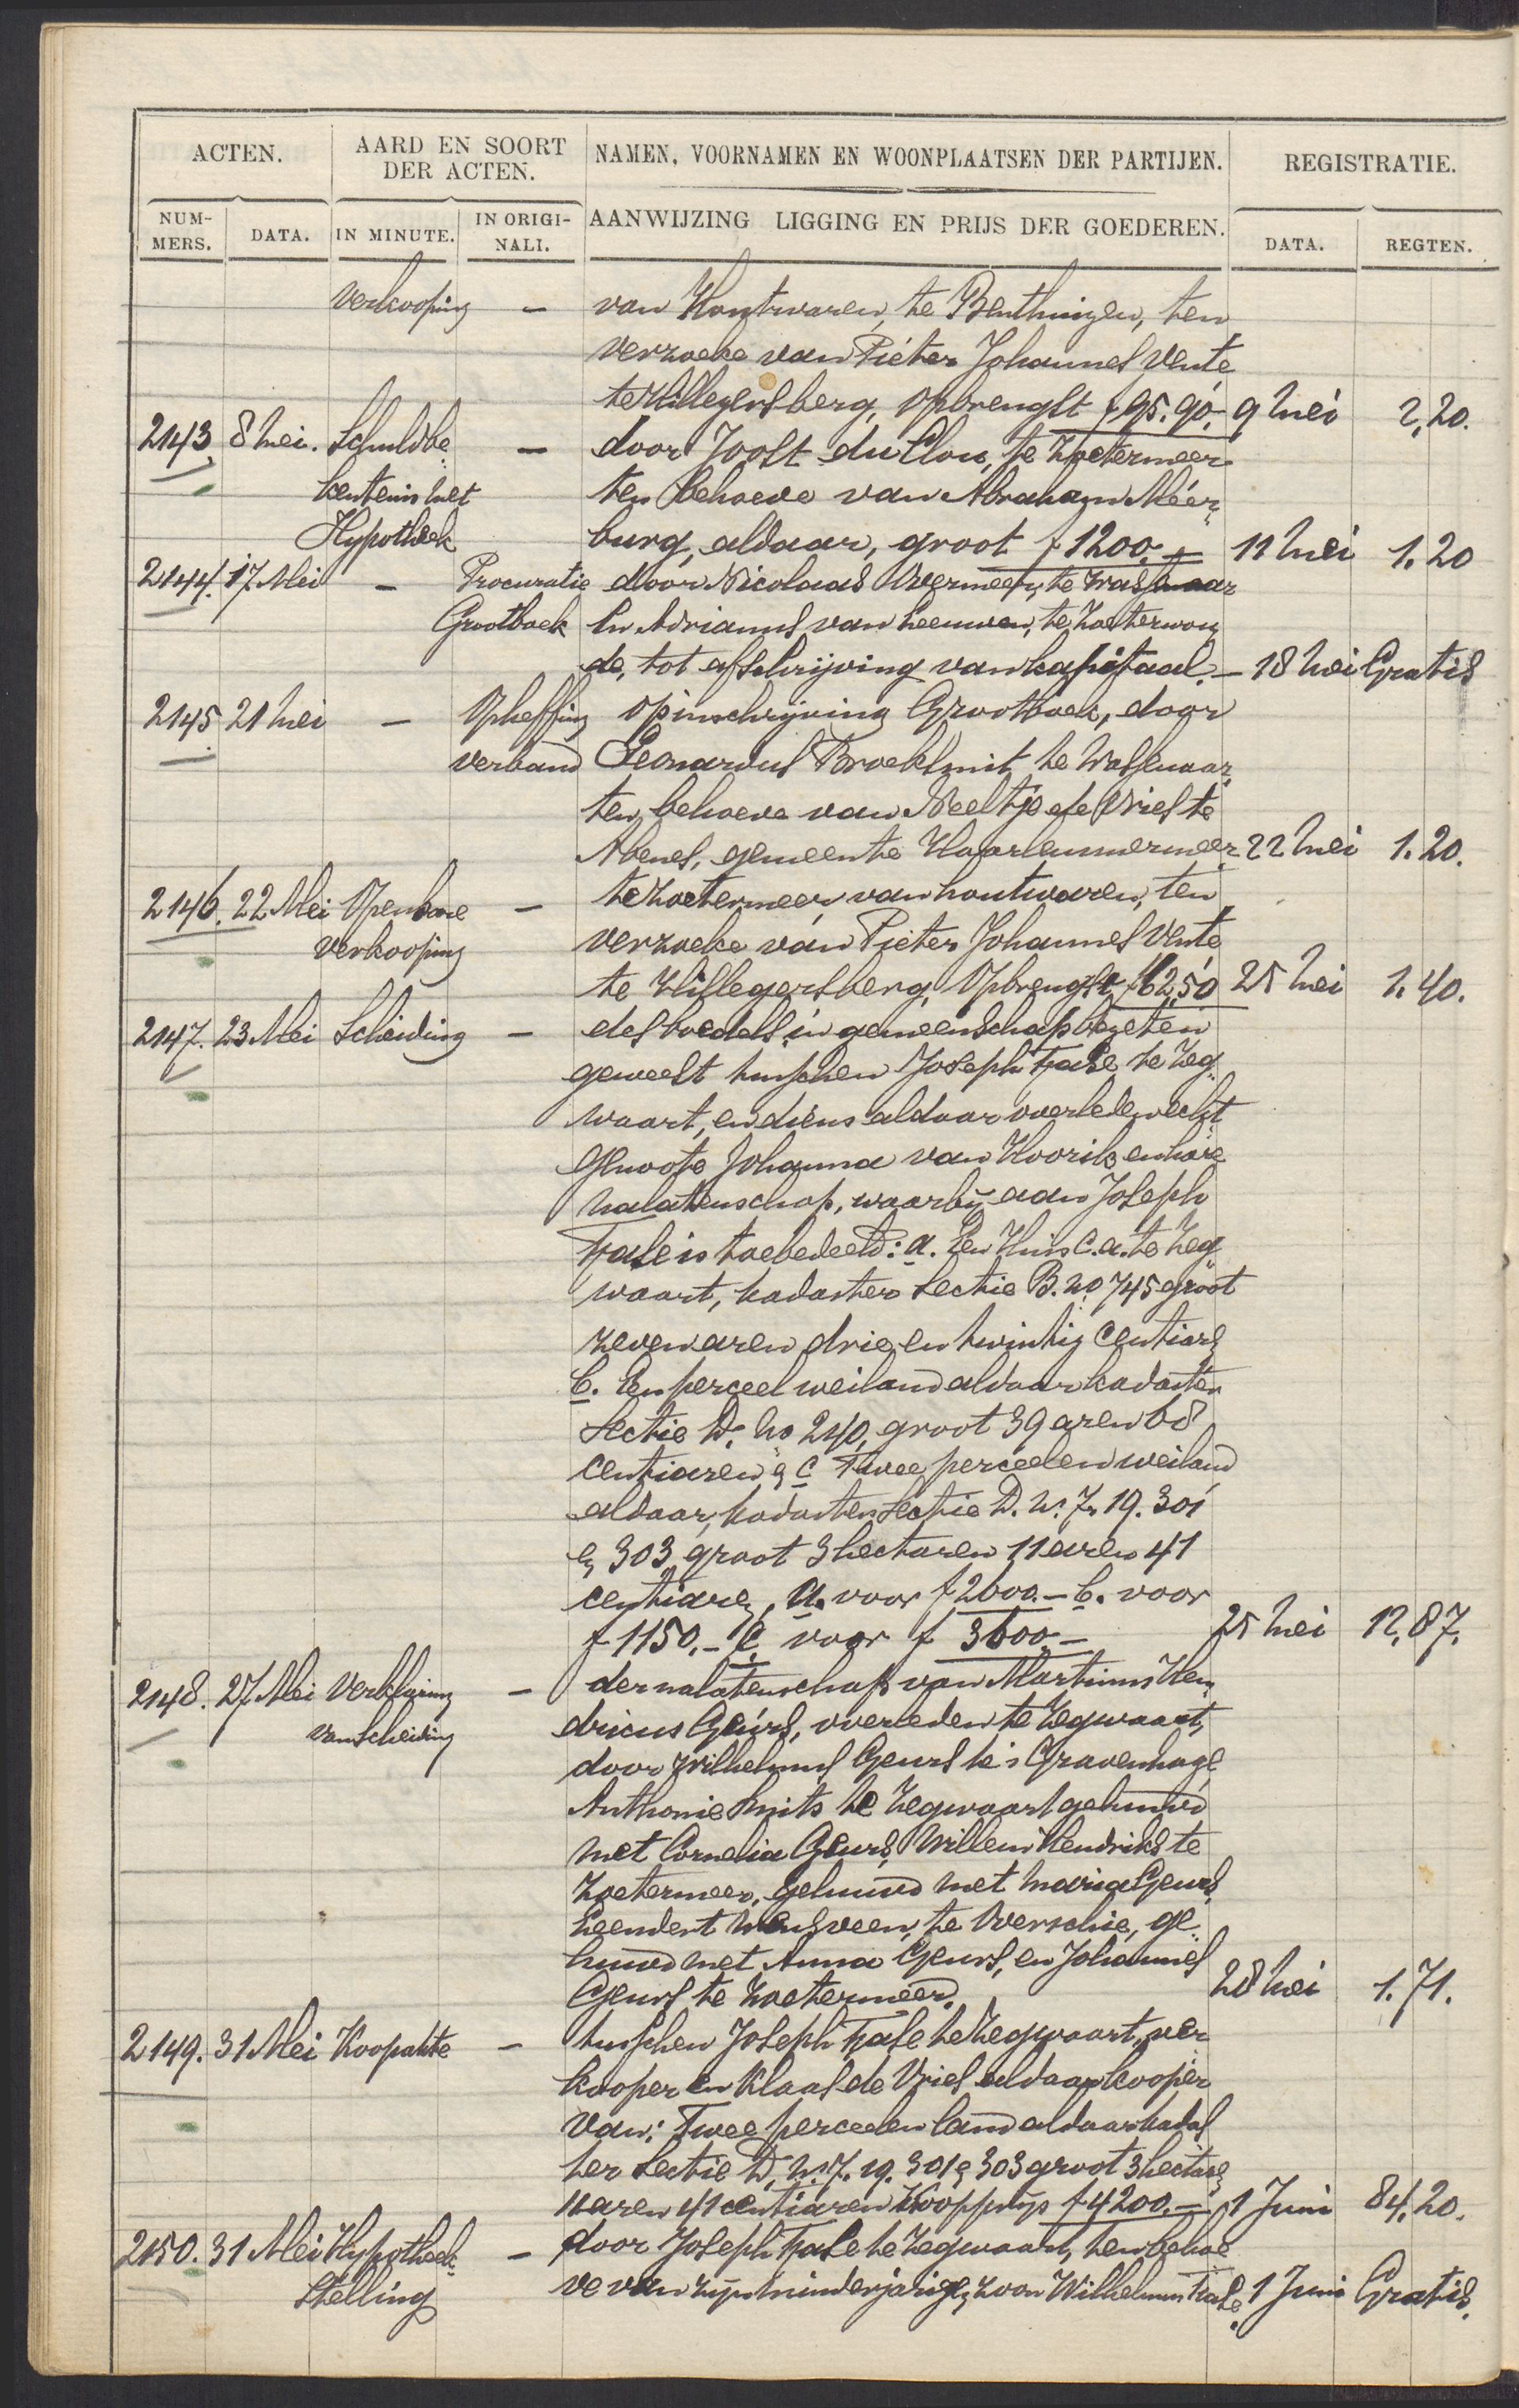 ACTEN. AARD EN SOORT DER ACTEN. NAMEN, VOORNAMEN EN WOONPLAATSEN DER PARTIJEN. REGISTRATIE.
NUM-MERS. DATA. IN MINUTE. IN ORIGI-NALI. AANWIJZING LIGGING EN PRIJS DER GOEDEREN. DATA. REGTEN.
verkooping — van Houtwaren, te Benthuizen, ten
verzoeke van Pieter Johannes Vente
te Hillegersberg, Opbrengst f 95.90. 9 Mei 2,20.
2143. 8 Mei. Schuldbe — door Joost du Clou, te Zoetermeer
kentenis met ten behoeve van Abraham Meer„
Hypotheek burg, aldaar, groot f 1200.— 11 Mei 1.20
2144. 17 Mei — Procuratie door Nicolaas Overmeer, te Wassenaar
Grootboek en Adrianus van Leeuwen, te Zoeterwou
de, tot afschrijving van kapitaal.— 18 Mei Gratis
2145 21 Mei — Opheffing op inschrijving Grootboek, door
verband Leonardus Broeksmit te Wassenaar,
ten behoeve van Neeltje de Vries te
Abenes, gemeente Haarlemmermeer 22 Mei 1.20.
2146. 22 Mei Openbare — te Zoetermeer van houtwaren, ten
verkooping verzoeke van Pieter Johannes Vente
te Hillegersberg, Opbrengst f 62,50 25 Mei 1.40.
2147. 23 Mei Scheiding — des boedels in gemeenschap bezeten
geweest tusschen Joseph Hase te Zeg„
waart, en diens aldaar overleden echt
genoote Johanna van Hoorik en hare
nalatenschap, waarbij aan Joseph
Hase is toebedeeld: a. Een Huis c.a. te Zeg„
waart, kadaster Sectie B. no 745 groot
zeven aren drie en twintig centiaren
b. Een perceel weiland aldaar kadaster
Sectie D. no 240, groot 39 aren 68
centiaren en c Twee perceelen weiland
aldaar, kadaster Sectie D. ns. 7. 19. 301
en 303 groot 3 hectaren 11 aren 41
centiaren, a. voor f 2600.— b. voor
f 1150.— c. voor f 3600.— 25 Mei 12,87.
2148. 27 Mei Verklaring — der nalatenschap van Martinus Hen„
van Scheiding dricus Geurs, overleden te Zegwaart,
door Wilhelmus Geurs te 's Gravenhage
Anthonie Smits te Zegwaart gehuwd
met Cornelia Geurs, Willem Hendriks te
Zoetermeer, gehuwd met Maria Geurs,
Leendert Wensveen, te Overschie, ge„
huwd met Anna Geurs, en Johannes
Geurs te Zoetermeer. 28 Mei 1.71.
2149. 31 Mei Koopakte — tusschen Joseph Hase te Zegwaart, ver
kooper en Klaas de Vries aldaar kooper
van: Twee perceelen land aldaar kadas
ter Sectie D, ns. 7. 19. 301 en 303 groot 3 hectaren
11 aren 41 centiaren Koopprijs f 4200.— 1 Juni 84,20.
2150. 31 Mei Hypotheek — door Joseph Hase te Zegwaart, ten behoe
Stelling ve van zijn minderjarigen zoon Wilhelmus Hase. 1 Juni Gratis.